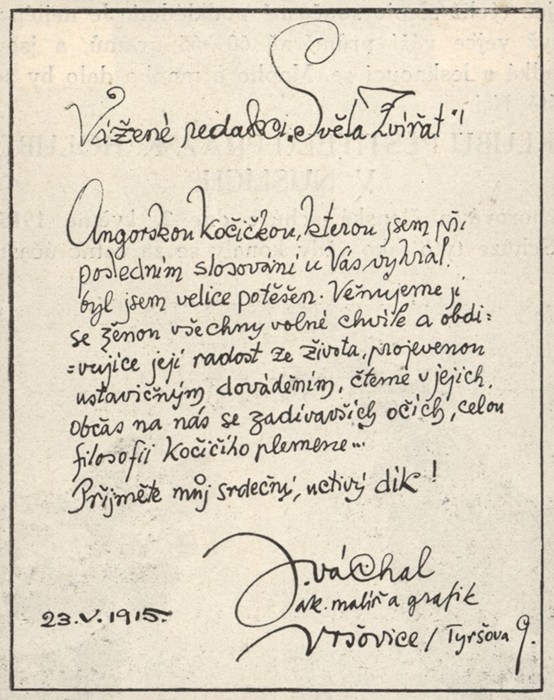 Vážené redakci „Světa Zvířat“!
Angorskou kočičkou, kterou jsem při
posledním slosování u Vás vyhrál,
byl jsem velice potěšen. Věnujeme jí
se ženou všechny volné chvíle a obdi=
=vujíce její radost ze života, projevenou
ustavičným dováděním, čteme v jejích,
občas na nás se zadívavších očích, celou
filosofii kočičího plemene...
Přijměte můj srdečný, uctivý dík!
J. váchal
ak. malíř a grafik
23.V.1915.
Vršovice / Tyršova 9.